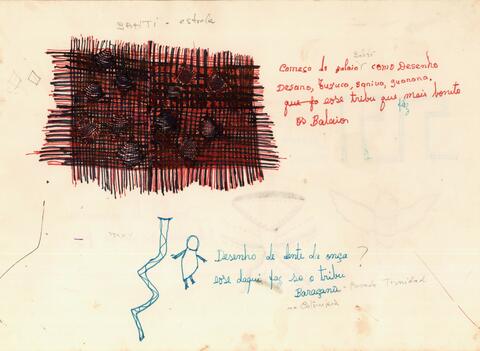 SANTI - estrela
Começo do palaio como Desenho
Desano, Tucuco, baniva, guanana.
que fo esse tribu que mais bonito
faz
os Balaios
Desenho de dente de onça ?
esse daqui faz so o tribu
Baraçana - Parado Trinidad
na Colombia